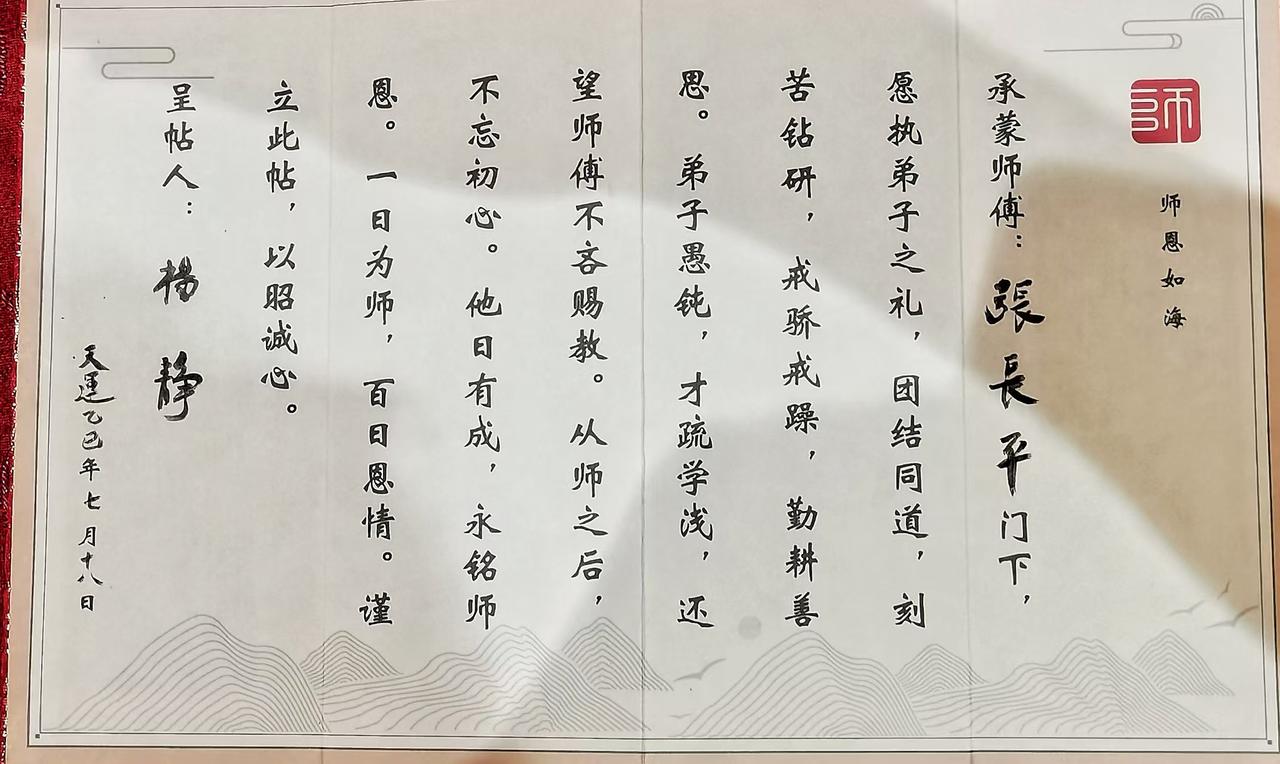 师
师恩如海
承蒙师傅：張長平门下，
愿执弟子之礼，团结同道，刻
苦钻研，戒骄戒躁，勤耕善
思。弟子愚钝，才疏学浅，还
望师傅不吝赐教。从师之后，
不忘初心。他日有成，永铭师
恩。一日为师，百日恩情。谨
立此帖，以昭诚心。
呈帖人：楊靜
天運乙巳年七月十八日